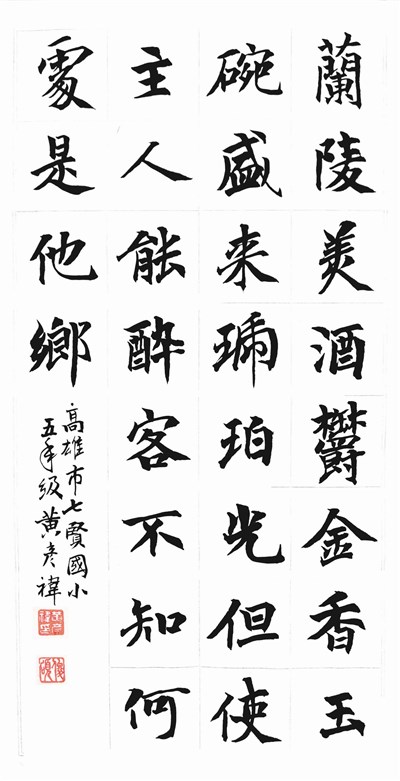 蘭陵美酒欝金香玉
碗盛来琥珀光但使
主人能醉客不知何
處是他鄉
高雄市七賢國小
五年級黃彥禕